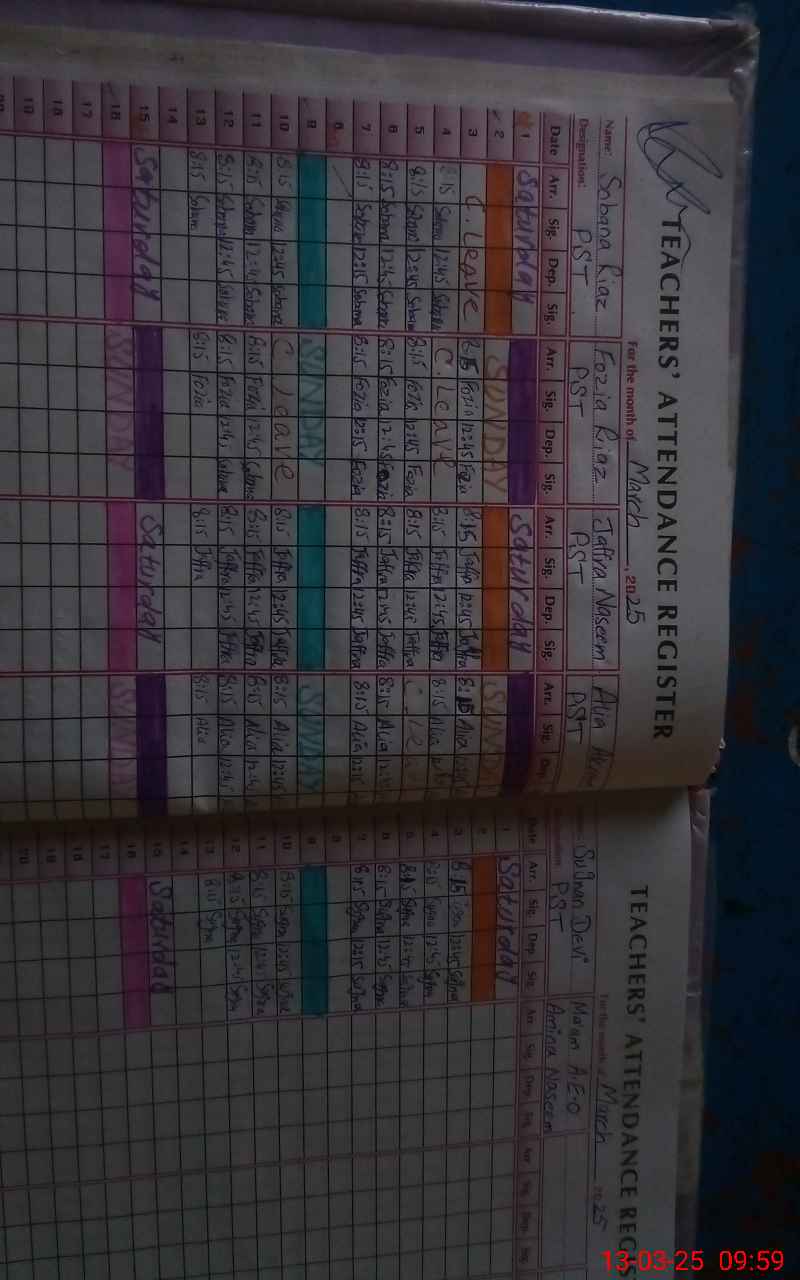 TEACHERS' ATTENDANCE REGISTER
For the month of March, 2025
Name: Sobana Riaz Fozia Riaz Jaffra Naseem Alia
Designation: PST PST PST PST
Date Arr. Sig. Dep. Sig. Arr. Sig. Dep. Sig. Arr. Sig. Dep. Sig. Arr. Sig. Dep.
1 Saturday Saturday
2 SUNDAY SUNDAY
3 C. Leave 8:15 Fozia 12:45 Fozia 8:15 Jaffra 12:45 Jaffra 8:15 Alia
4 8:15 Sobana 12:45 Sobana C. Leave 8:15 Jaffra 12:45 Jaffra 8:15 Alia
5 8:15 Sobana 12:45 Sobana 8:15 Fozia 12:45 Fozia 8:15 Jaffra 12:45 Jaffra
6 8:15 Sobana 12:45 Sobana 8:15 Fozia 12:45 Fozia 8:15 Jaffra 12:45 Jaffra 8:15 Alia 12:45
7 8:15 Sobana 12:15 Sobana 8:15 Fozia 12:15 Fozia 8:15 Jaffra 12:45 Jaffra 8:15 Alia 12:15
8
9 SUNDAY SUNDAY
10 8:15 Sobana 12:45 Sobana C Leave 8:15 Jaffra 12:45 Jaffra 8:15 Alia 12:45
11 8:15 Sobana 12:45 Sobana 8:15 Fozia 12:45 8:15 Jaffra 12:45 Jaffra 8:15 Alia
12 8:15 Sobana 12:45 Sobana 8:15 Fozia 12:45 8:15 Jaffra 12:45 Jaffra 8:15 Alia 12:45
13 8:15 Sobana 8:15 Fozia 8:15 Jaffra 8:15 Alia
14
15 Saturday Saturday
16 SUNDAY SUNDAY
17
18
19
TEACHERS' ATTENDANCE REGIS
For the month of March 2025
Devi Ma'am A.E.O
PST Amina Naseem
Date Arr. Sig. Dep. Sig. Arr. Sig. Dep. Sig. Arr. Sig. Dep. Sig.
1 Saturday
2
3 8:15 12:45
4 8:15 12:45
5 8:15
6 8:15 12:45
7 8:15 12:15
8
9
10 8:15 12:45
11 8:15 12:45
12 8:15 12:45
13 8:15
14
15 Saturday
16
17
18
19
20
13-03-25 09:59